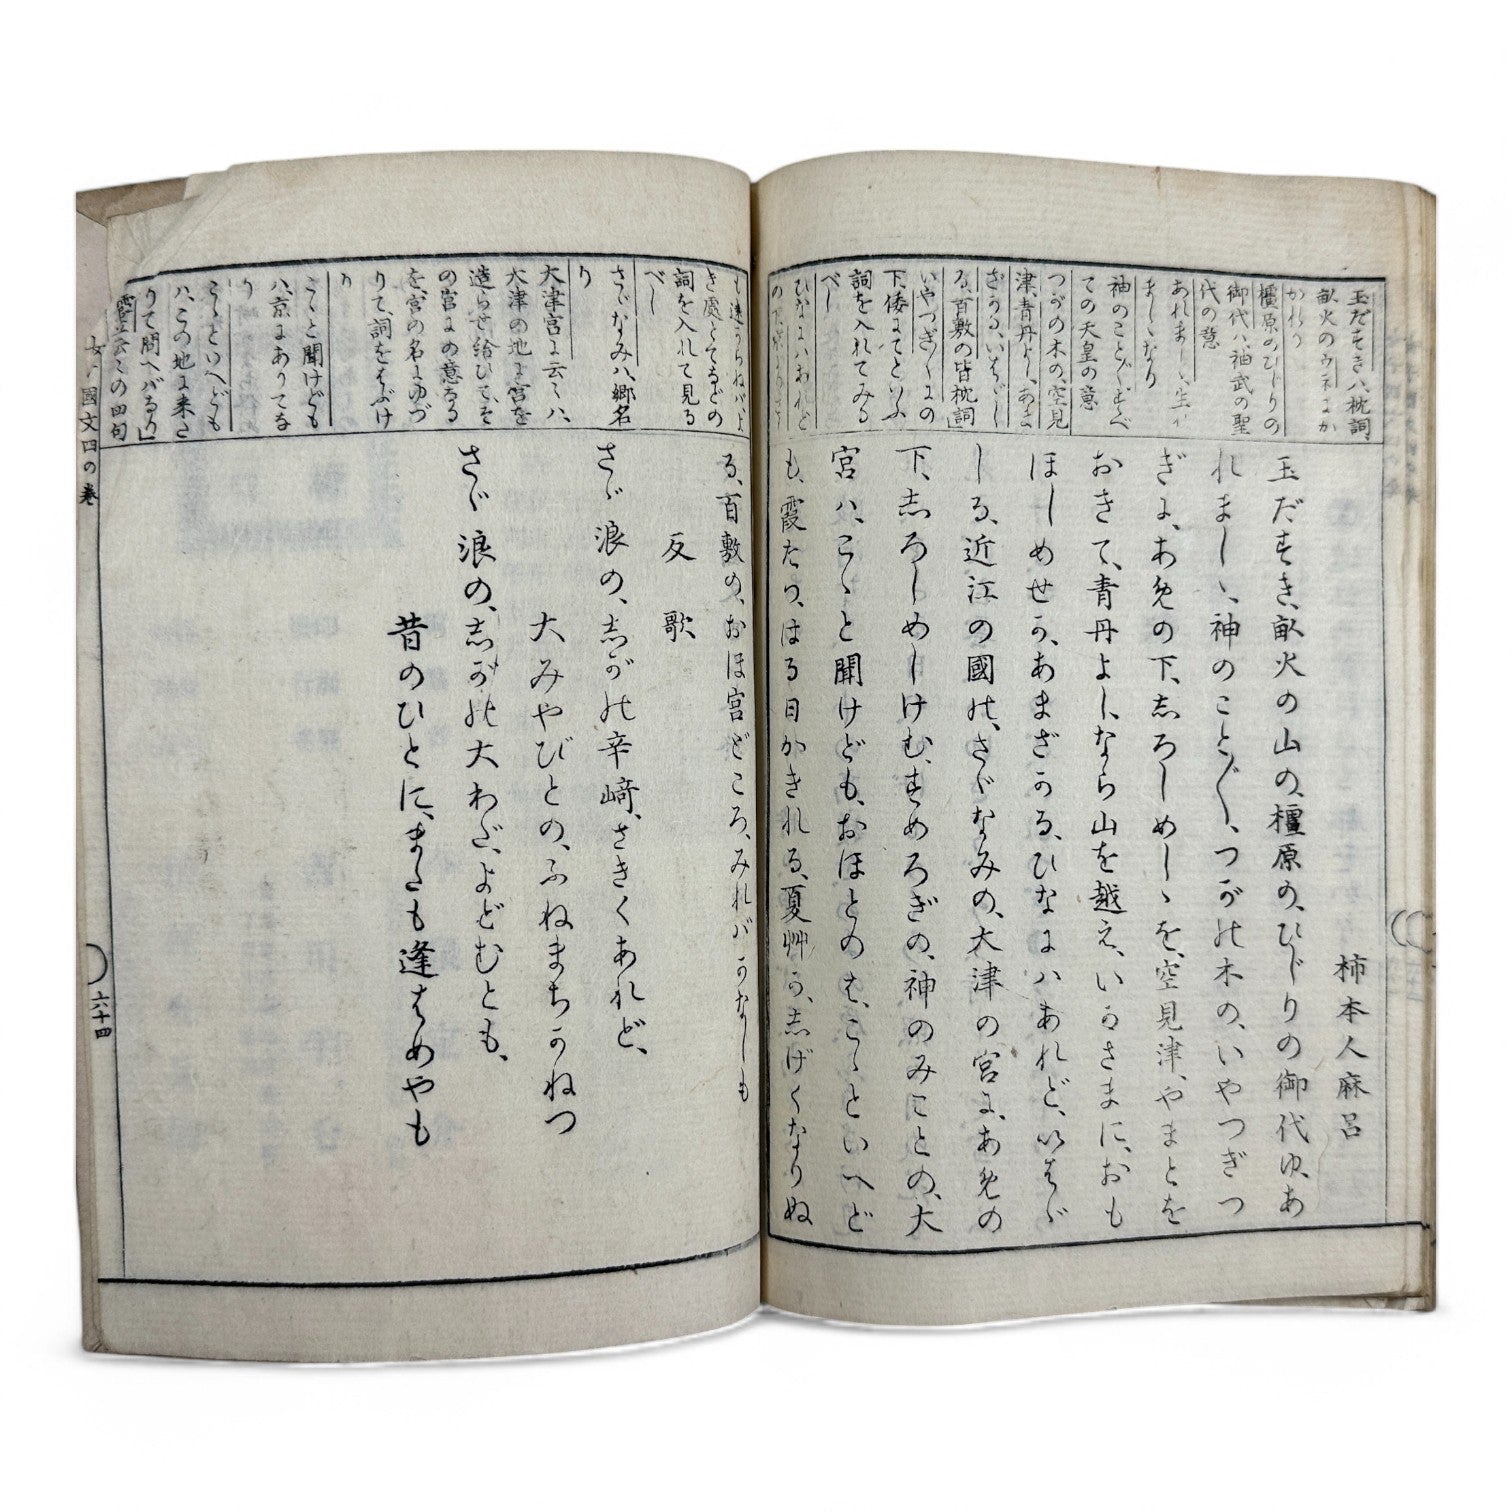 玉だすきハ枕詞
畝火のウネにか
かれり
橿原のひじりの
御代ハ、神武の聖
代の意
あれましゝ、生れ
ましゝなり
神のこと〴〵、すべ
ての天皇の意
つがの木の、空見
津、青丹よし、あま
ざかる、いはゞし
る、百敷の皆枕詞
いやつぎ〳〵にの
下、倭にてといふ
詞を入れてみる
べし
ひなにハあれど
柿本人麻呂
玉だすき、畝火の山の、橿原の、ひじりの御代ゆ、あ
れましゝ、神のこと〴〵、つがの木の、いやつぎつ
ぎに、あめの下、志ろしめしゝを、空見津、やまとを
おきて、青丹よし、なら山を越え、いかさまに、おも
ほしめせか、あまざかる、ひなにハあれど、いはゞ
しる、近江の國の、さゞなみの、大津の宮に、あめの
下、志ろしめしけむ、すめろぎの、神のみことの、大
宮ハ、こゝと聞けども、おほとのは、こゝといへど
も、霞たつ、はる日かきれる、夏艸か、志げくなりぬ
も遠からねバ、よ
き處とてなどの
詞を入れて見る
べし
さゞなみハ、郷名
り
大津宮に云々ハ、
大津の地に宮を
造らせ給ひて、そ
の宮にの意なる
を、宮の名にゆづ
りて、詞をはぶけ
り
こゝと聞けども
ハ、京にありてな
り
こゝといへども
ハ、この地に来さ
りて問へバなり」
霞立云々の四句
る、百敷の、おほ宮どころ、みれバかなしも
反歌
さゞ浪の、志がの辛﨑、さきくあれど、
大みやびとの、ふねまちかねつ
さゞ浪の、志がの大わだ、よどむとも、
昔のひとに、またも逢はめやも
國文 四の巻
六十四